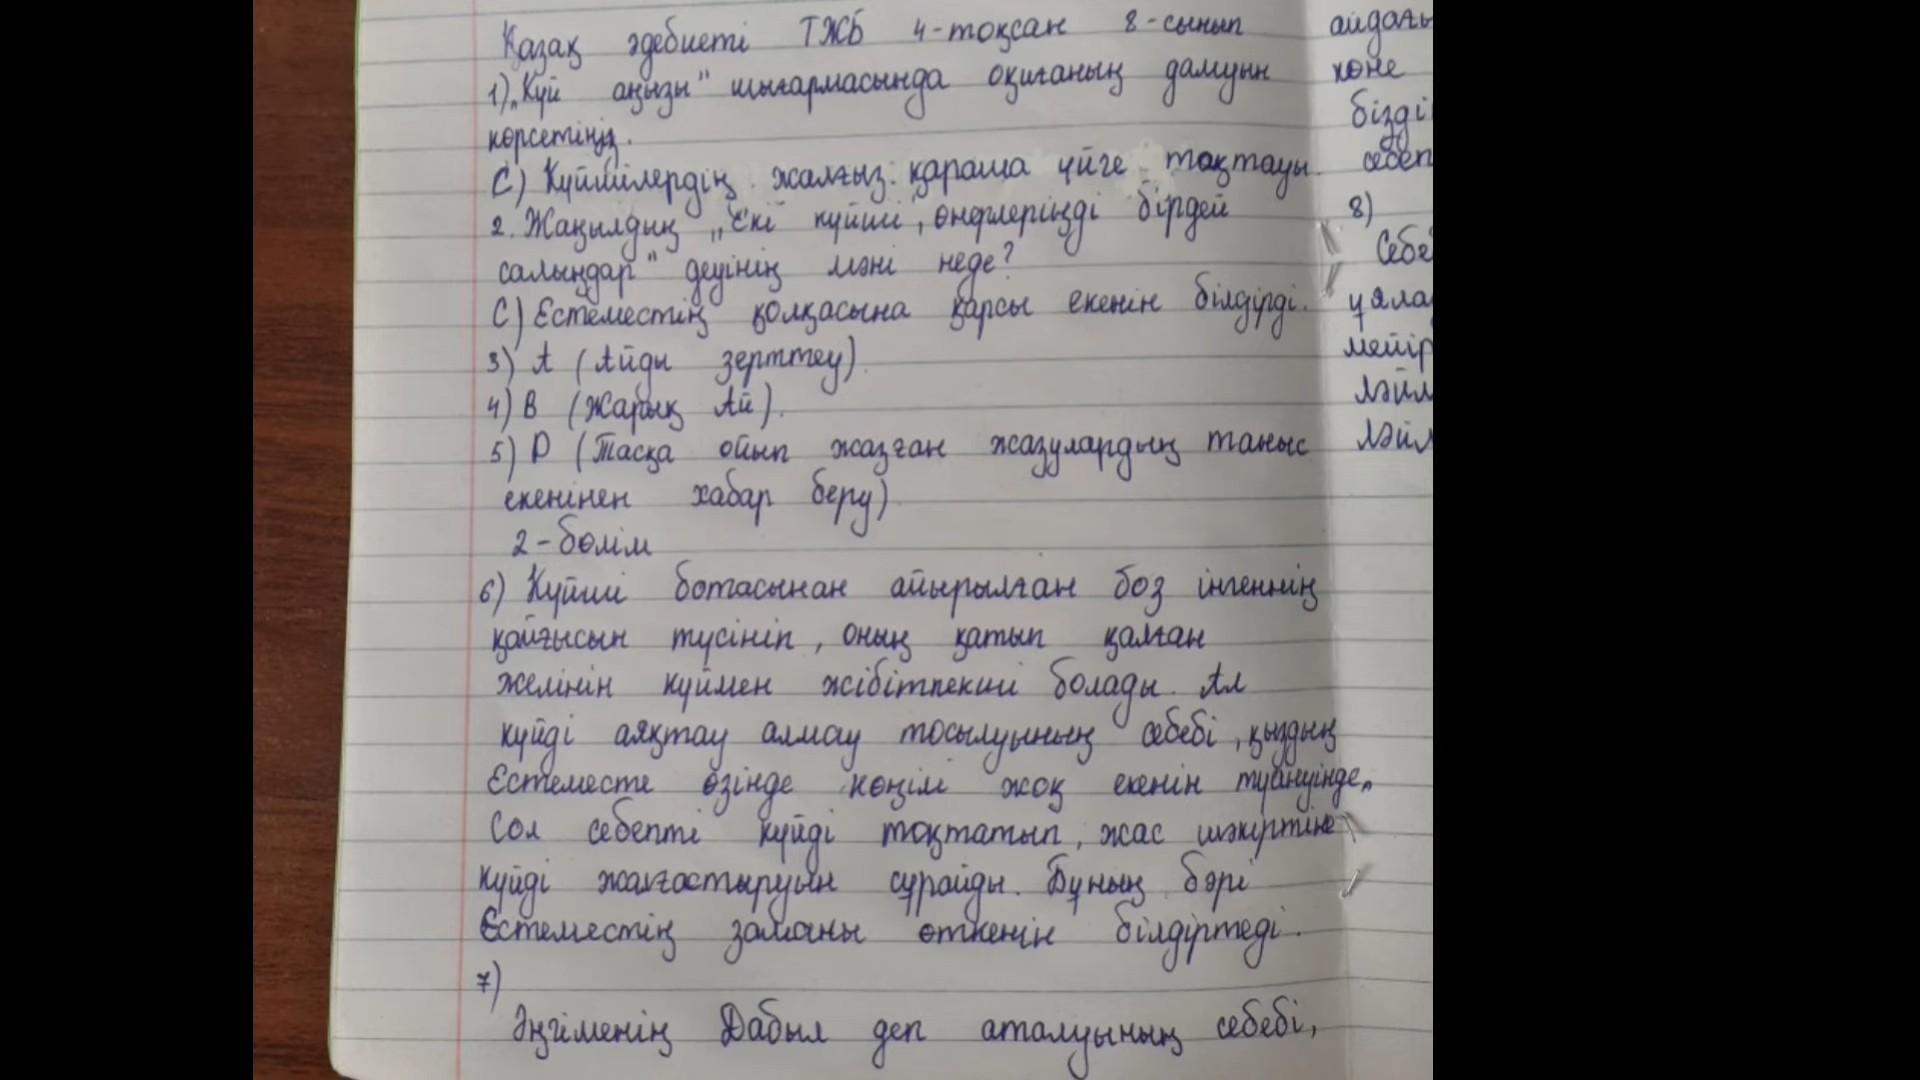 Қазақ әдебиеті ТЖБ 4-тоқсан 8-сынып
1) „Күй аңызы" шығармасында оқиғаның дамуын
көрсетіңіз.
С) Күйшілердің жалғыз қараша үйге тоқтауы.
2. Жаңылдың „Екі күйші, өнерлеріңді бірдей
салыңдар" деуінің мәні неде?
С) Естеместің қолқасына қарсы екенін білдірді.
3) А (Айды зерттеу).
4) В (Жарық Ай).
5) D (Тасқа ойып жазған жазулардың таныс
екенінен хабар беру)
2-бөлім
6) Күйші ботасынан айырылған боз інгеннің
қайғысын түсініп, оның қатып қалған
желінін күймен жібітпекші болады. Ал
күйді аяқтау алмау тосылуының себебі, қыздың
Естеместе өзінде көңілі жоқ екенін түйнуінде.
Сол себепті күйді тоқтатып, жас шәкіртіне
күйді жалғастыруын сұрайды. Бұның бәрі
Естеместің заманы өткенін білдіртеді.
7)
Әңгіменің Дабыл деп аталуының себебі,
айдағы
және
бізді
себеп
8)
Себе
ұяла
мейір
Ләйл
Ләйл